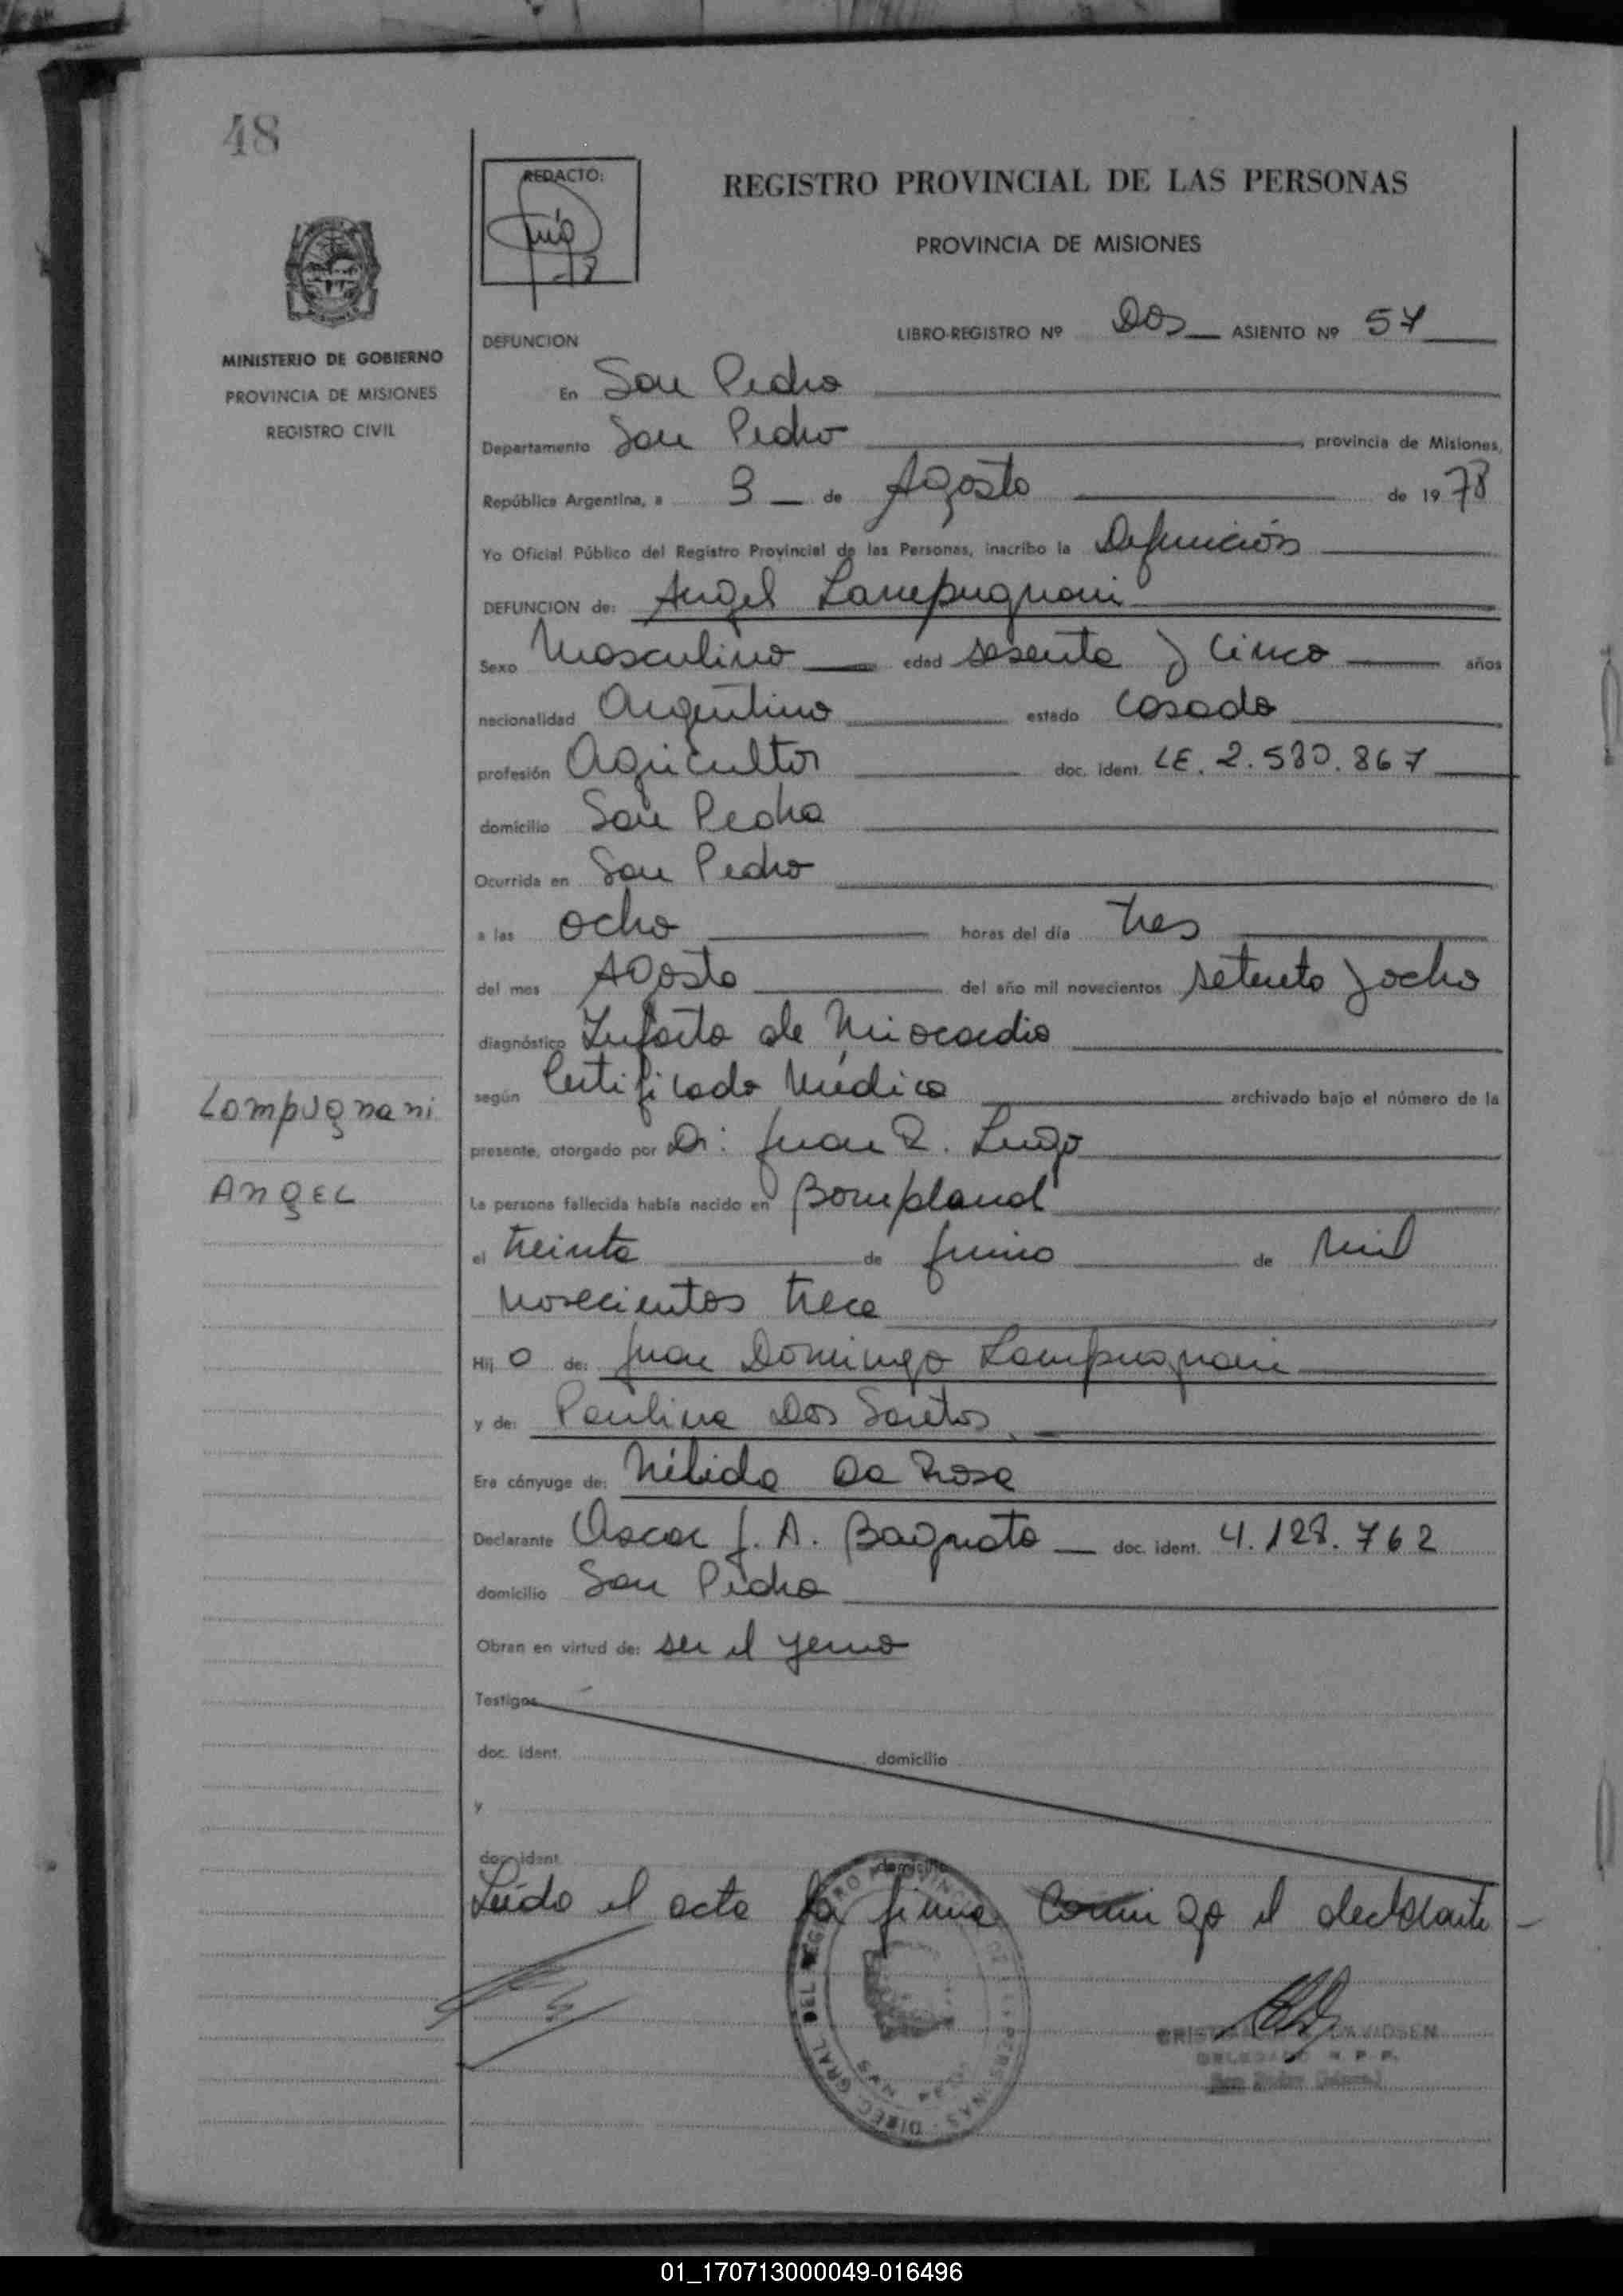 48
REDACTO:
REGISTRO PROVINCIAL DE LAS PERSONAS
PROVINCIA DE MISIONES
MINISTERIO DE GOBIERNO
PROVINCIA DE MISIONES
REGISTRO CIVIL
DEFUNCION LIBRO-REGISTRO Nº Dos ASIENTO Nº 57
En San Pedro
Departamento San Pedro, provincia de Misiones,
República Argentina, a 3 de Agosto de 1978
Yo Oficial Público del Registro Provincial de las Personas, inscribo la Defunción
DEFUNCION de: Angel Lampugnani
Sexo Masculino edad sesenta y cinco años
nacionalidad Argentino estado casado
profesión Agricultor doc. ident. LE. 2.580.867
domicilio San Pedro
Ocurrida en San Pedro
a las ocho horas del día tres
del mes Agosto del año mil novecientos setenta y ocho
diagnóstico Infarto de Miocardio
según Certificado Médico archivado bajo el número de la
presente, otorgado por Dr: Juan R. Lugo
La persona fallecida había nacido en Bompland
el treinta de junio de mil
novecientos trece
Hijo de: Juan Domingo Lampugnani
y de: Paulina Dos Santos
Era cónyuge de: Nélida Da Rosa
Declarante Oscar J. A. Bagnato doc. ident. 4.128.762
domicilio San Pedro
Obran en virtud de: ser el yerno
Testigos
doc. ident. domicilio
y
doc. ident. domicilio
Leído el acta la firma conmigo el declarante
Lampugnani
Angel
DIREC. GRAL. DEL REGISTRO PROVINCIAL DE LAS PERSONAS
SAN PEDRO
DAVIDSEN
DELEGADO R. P. P.
01_170713000049-016496